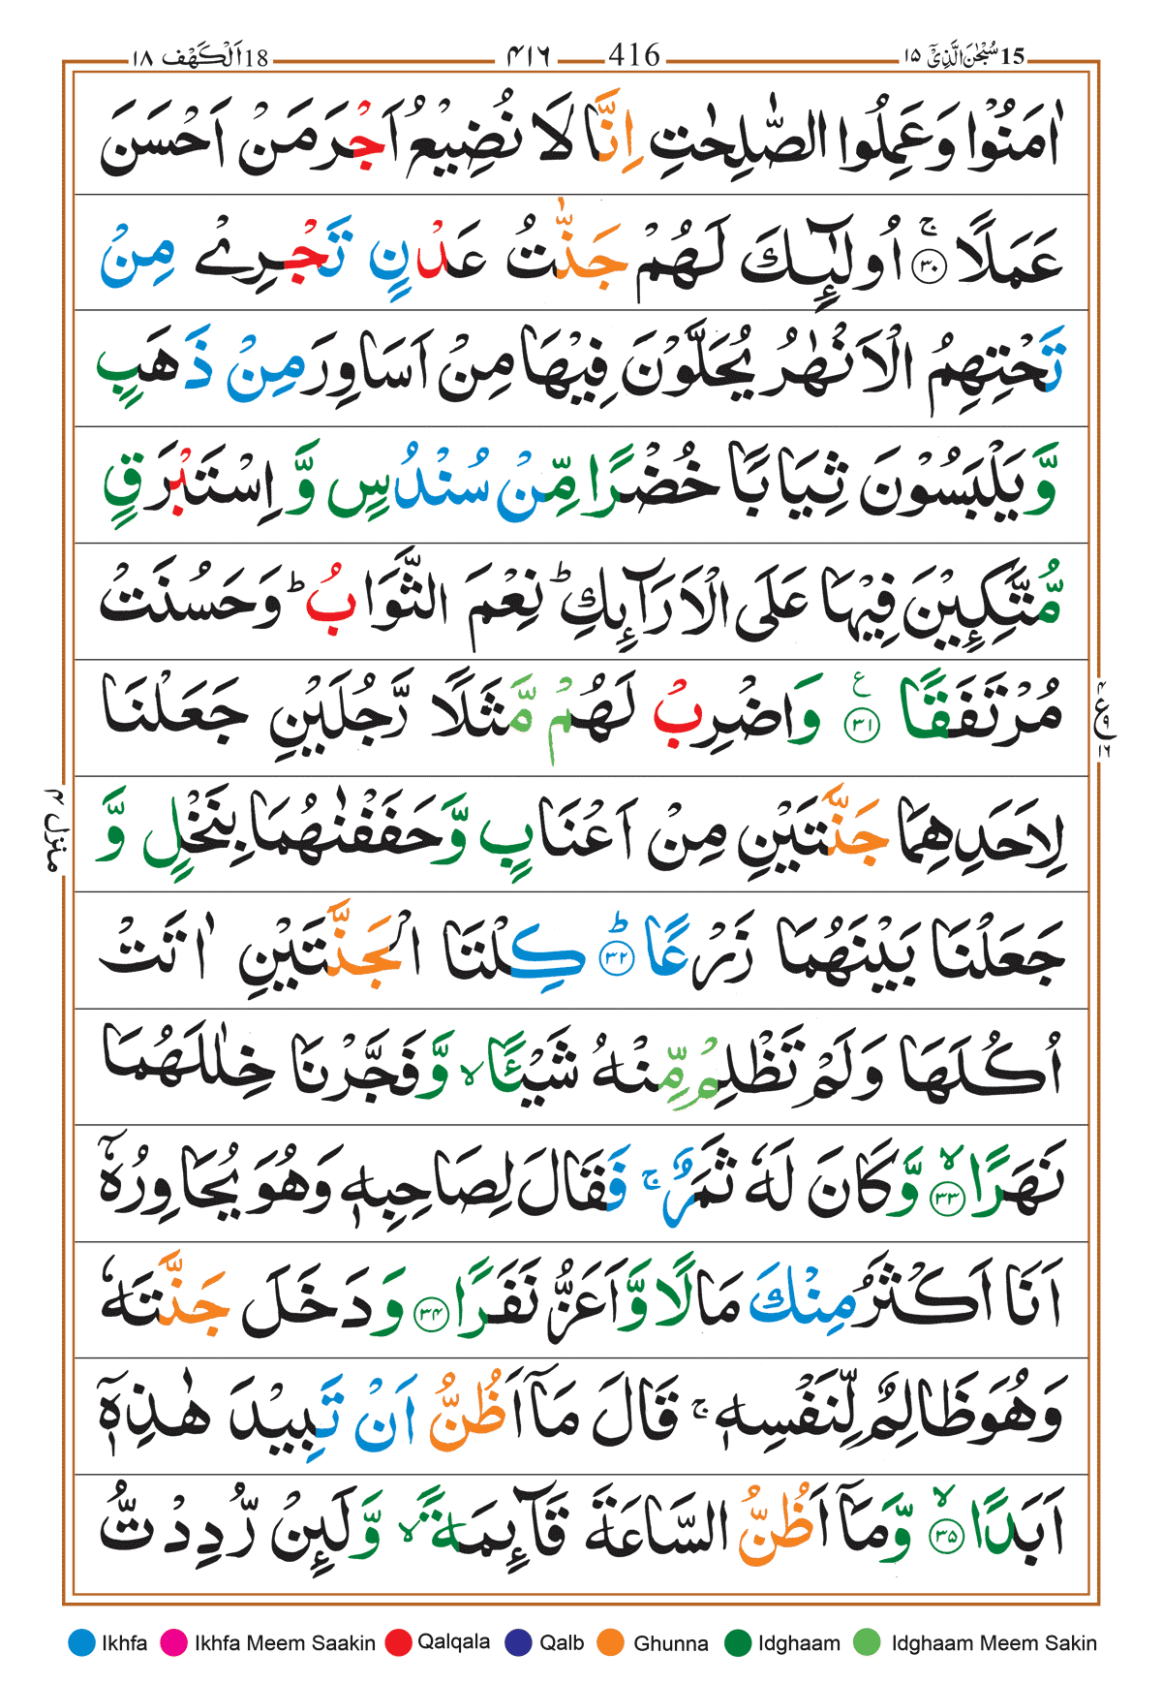 15 سُبْحٰنَ الَّذِیْۤ ۱۵ 416 ۴۱۶ 18 اَلْكَهْف ۱۸
اٰمَنُوْا وَعَمِلُوا الصّٰلِحٰتِ اِنَّا لَا نُضِیْعُ اَجْرَ مَنْ اَحْسَنَ
عَمَلًا ۚ ﴿۳۰﴾ اُولٰٓئِكَ لَهُمْ جَنّٰتُ عَدْنٍ تَجْرِیْ مِنْ
تَحْتِهِمُ الْاَنْهٰرُ یُحَلَّوْنَ فِیْهَا مِنْ اَسَاوِرَ مِنْ ذَهَبٍ
وَّیَلْبَسُوْنَ ثِیَابًا خُضْرًا مِّنْ سُنْدُسٍ وَّ اِسْتَبْرَقٍ
مُّتَّكِـِٕیْنَ فِیْهَا عَلَى الْاَرَآئِكِ ؕ نِعْمَ الثَّوَابُ ؕ وَحَسُنَتْ
مُرْتَفَقًا ﴿۳۱﴾ ع وَاضْرِبْ لَهُمْ مَّثَلًا رَّجُلَیْنِ جَعَلْنَا
لِاَحَدِهِمَا جَنَّتَیْنِ مِنْ اَعْنَابٍ وَّحَفَفْنٰهُمَا بِنَخْلٍ وَّ
جَعَلْنَا بَیْنَهُمَا زَرْعًا ؕ ﴿۳۲﴾ كِلْتَا الْجَنَّتَیْنِ اٰتَتْ
اُكُلَهَا وَلَمْ تَظْلِمْ مِّنْهُ شَیْـًٔا ۙ وَّفَجَّرْنَا خِلٰلَهُمَا
نَهَرًا ۙ ﴿۳۳﴾ وَّكَانَ لَهٗ ثَمَرٌ ۚ فَقَالَ لِصَاحِبِهٖ وَهُوَ یُحَاوِرُهٗۤ
اَنَا اَكْثَرُ مِنْكَ مَالًا وَّاَعَزُّ نَفَرًا ﴿۳۴﴾ وَدَخَلَ جَنَّتَهٗ
وَهُوَ ظَالِمٌ لِّنَفْسِهٖ ۚ قَالَ مَاۤ اَظُنُّ اَنْ تَبِیْدَ هٰذِهٖۤ
اَبَدًا ۙ ﴿۳۵﴾ وَّمَاۤ اَظُنُّ السَّاعَةَ قَآئِمَةً ۙ وَّلَئِنْ رُّدِدْتُّ
ع ۴ ۹ ۱۶
منزل ۴
Ikhfa Ikhfa Meem Saakin Qalqala Qalb Ghunna Idghaam Idghaam Meem Sakin